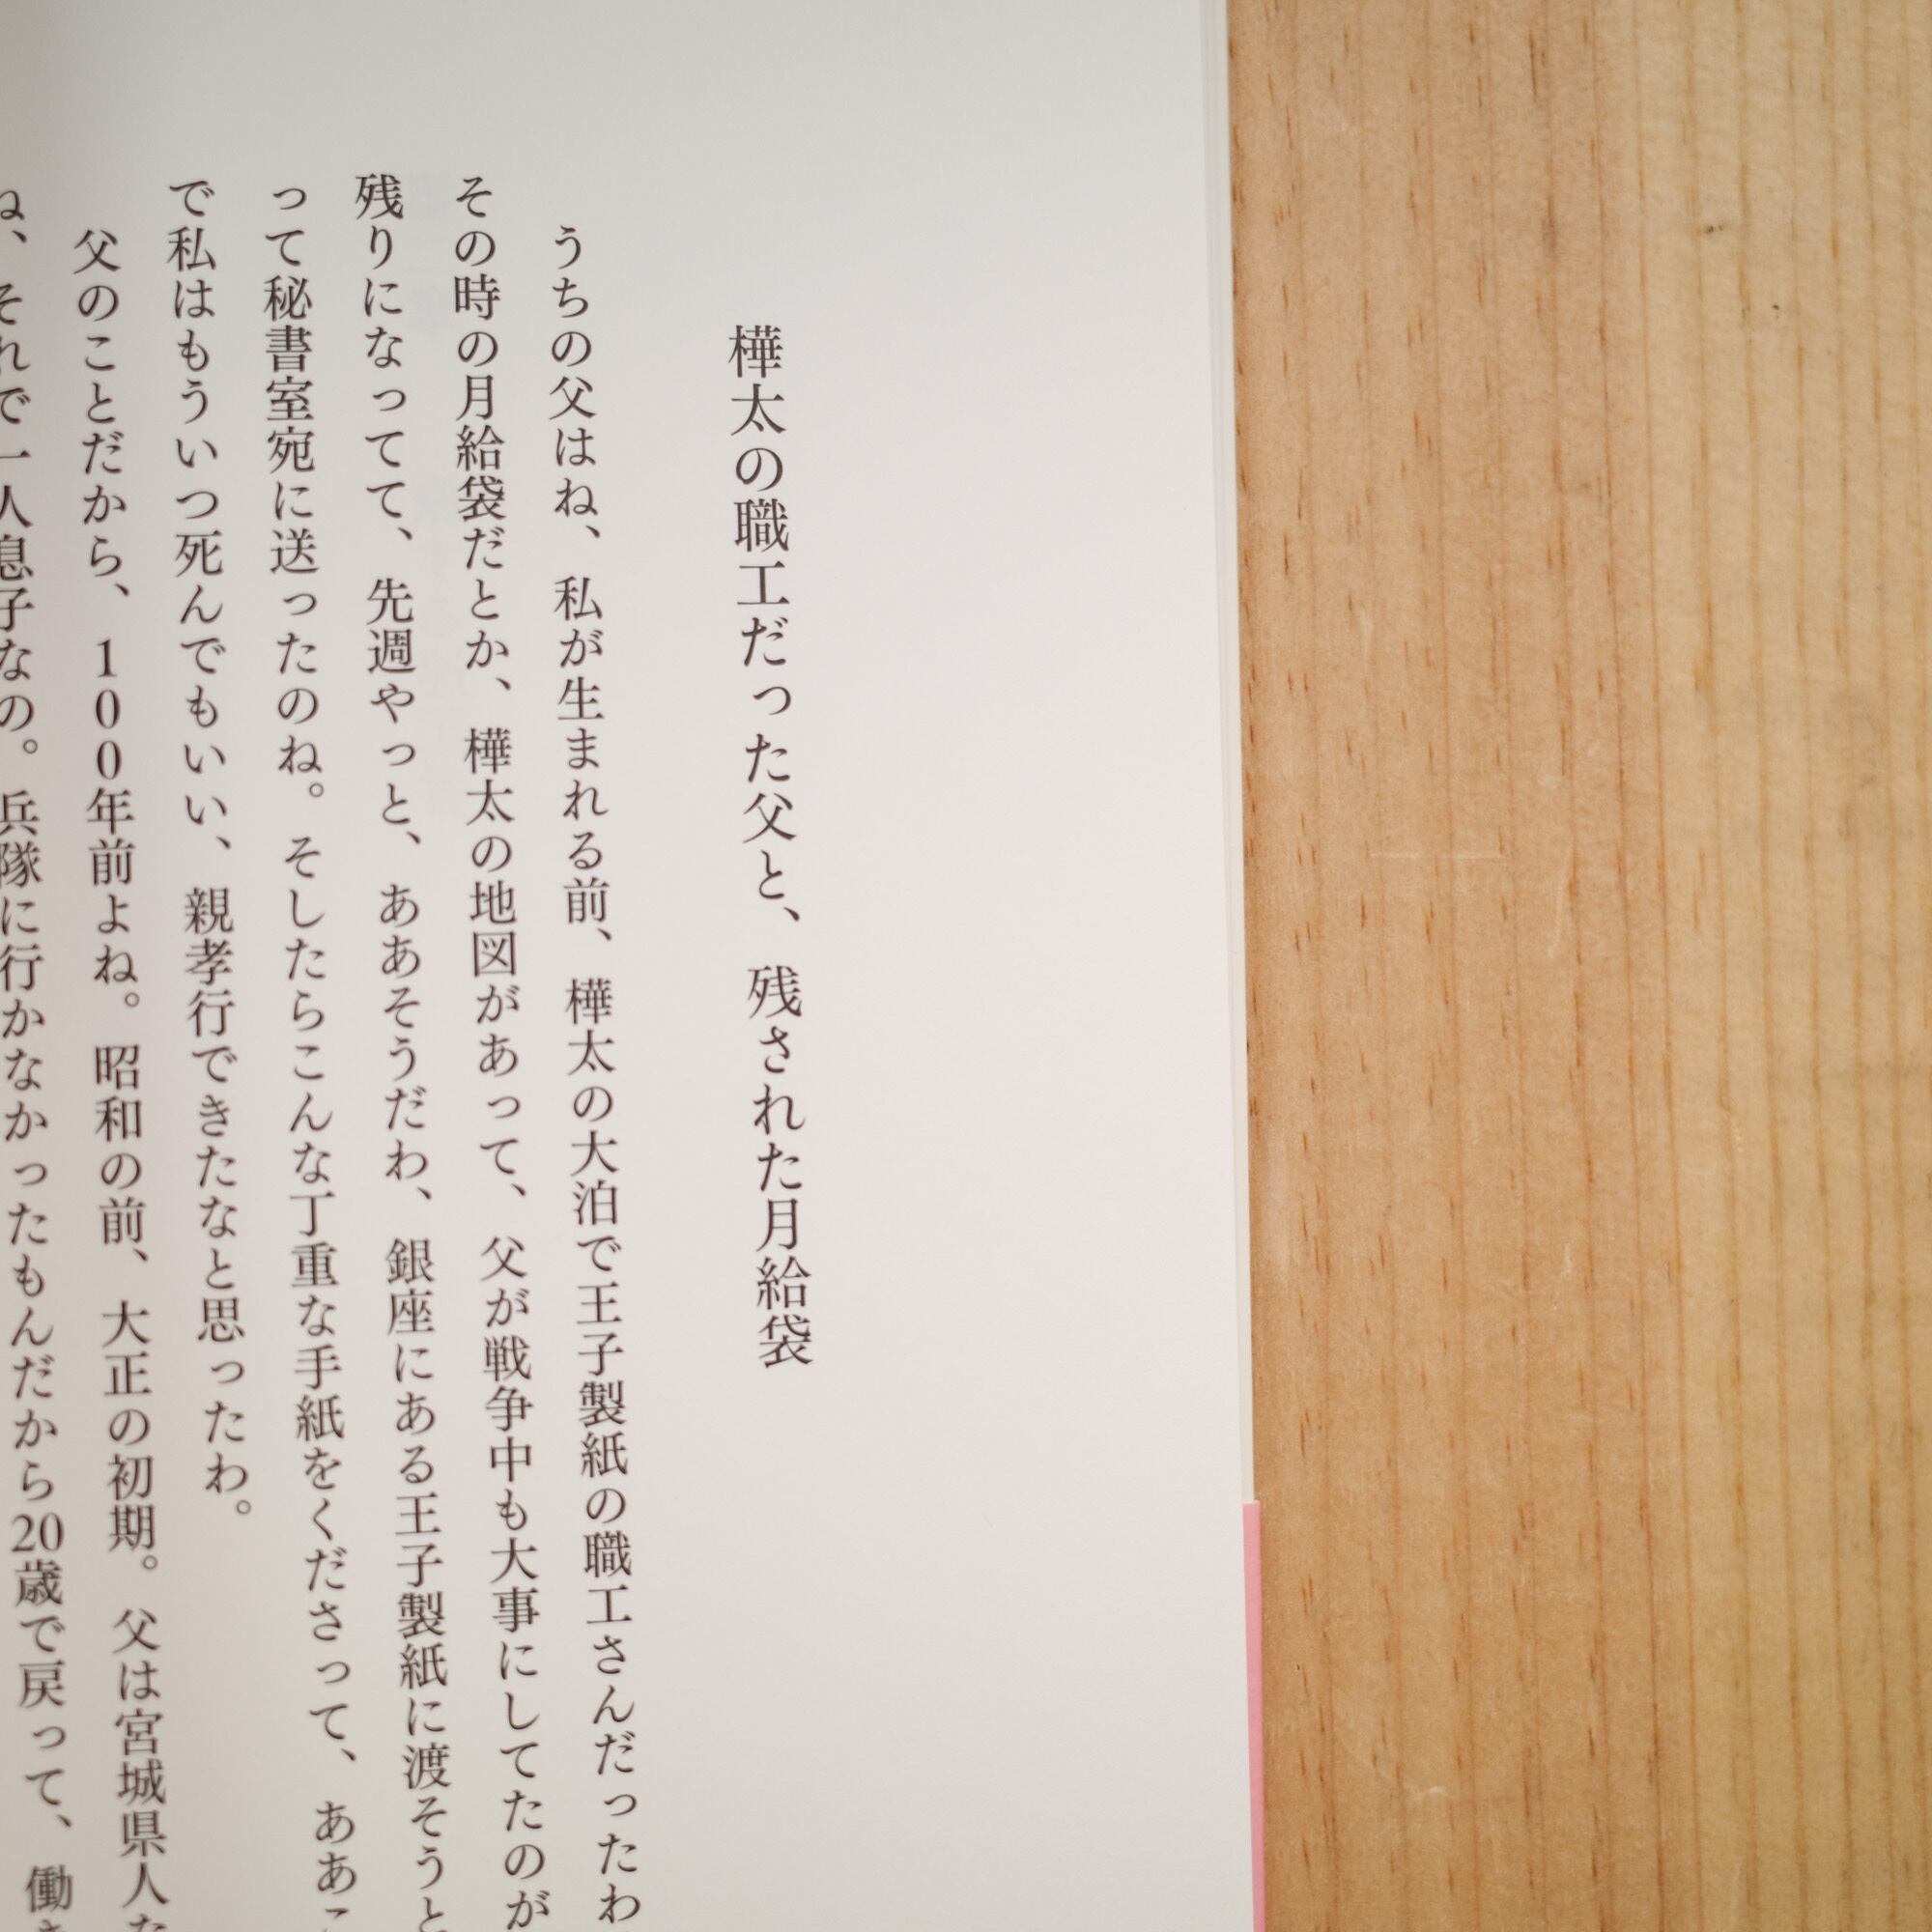 樺太の職工だった父と、残された月給袋
うちの父はね、私が生まれる前、樺太の大泊で王子製紙の職工さんだったわ
その時の月給袋だとか、樺太の地図があって、父が戦争中も大事にしてたのが
残りになってて、先週やっと、ああそうだわ、銀座にある王子製紙に渡そうと
って秘書室宛に送ったのね。そしたらこんな丁重な手紙をくださって、ああこ
で私はもういつ死んでもいい、親孝行できたなと思ったわ。
父のことだから、100年前よね。昭和の前、大正の初期。父は宮城県人な
ね、それで一人息子なの。兵隊に行かなかったもんだから20歳で戻って、働き